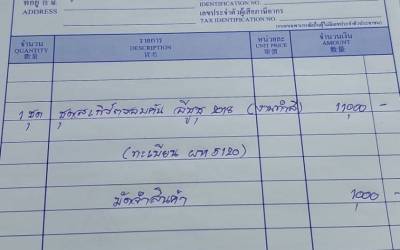 IDENTIFICATION NO.
เลขประจำตัวผู้เสียภาษีอากร
TAX IDENTIFICATION NO.
จำนวน รายการ หน่วยละ จำนวนเงิน
QUANTITY DESCRIPTION UNIT PRICE AMOUNT
數量 貨名 單價 數量
1 ชุด ชุดสเกิร์ตรอบคัน 2018 (งานทำสี) 11000 -
(ทะเบียน 5120)
มัดจำสินค้า 1000 -